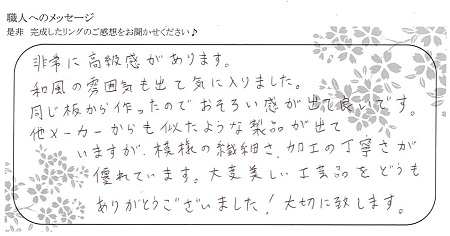 職人へのメッセージ
是非 完成したリングのご感想をお聞かせください♪
非常に高級感があります。
和風の雰囲気も出て気に入りました。
同じ板から作ったのでおそろい感が出て良いです。
他メーカーからも似たような製品が出て
いますが、模様の繊細さ、加工の丁寧さが
優れています。大変美しい工芸品をどうも
ありがとうございました！大切に致します。